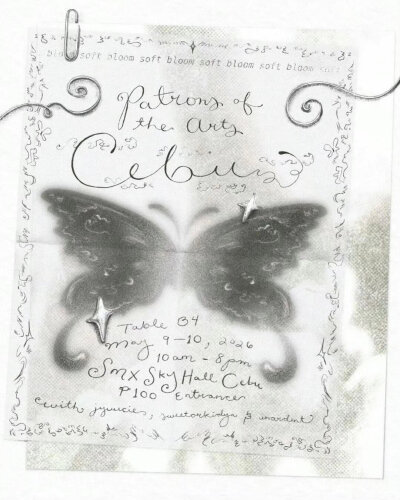 bloom soft bloom soft bloom soft bloom soft bloom soft
Patrons of
the Arts
Cebu
Table B4
May 9-10, 2026
10am - 8pm
SMX Sky Hall Cebu
₱100 Entrance
with